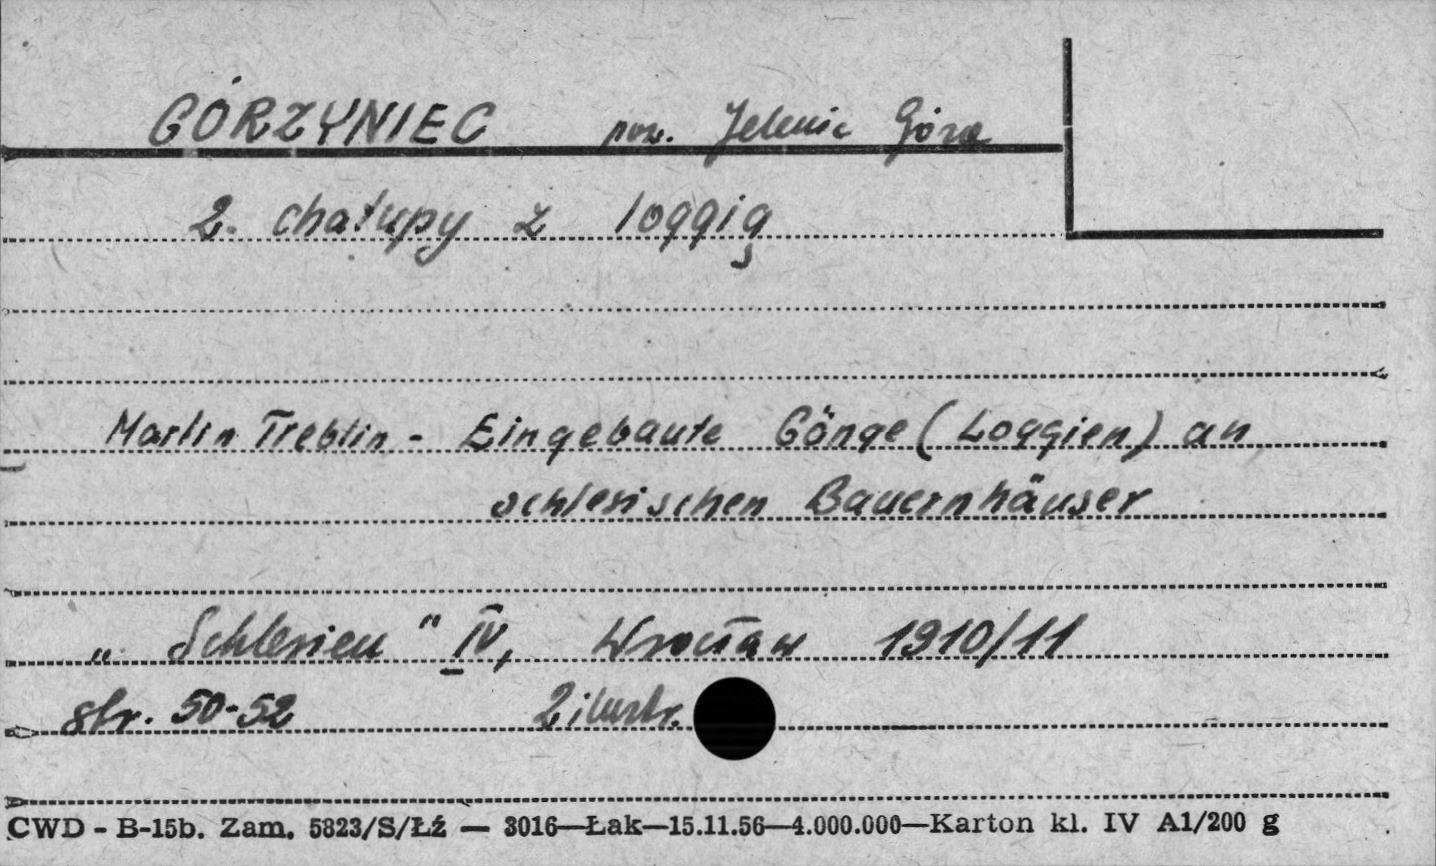 GÓRZYNIEC pow. Jelenia Góra
2. chałupy z loggią
Martin Treblin - Eingebaute Gänge (Loggien) an
schlesischen Bauernhäuser
„Schlesien" IV, Wrocław 1910/11
str. 50-52 2 ilustr.
CWD - B-15b. Zam. 5823/S/Łź — 3016—Łak—15.11.56—4.000.000—Karton kl. IV A1/200 g